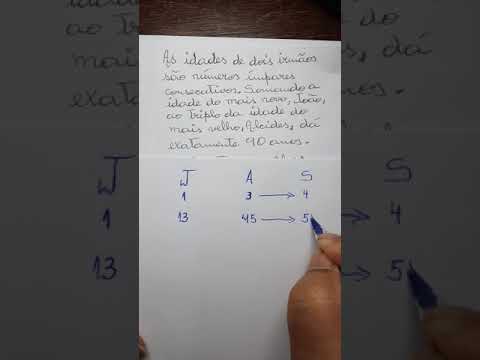 As idades de dois irmãos
são números ímpares
consecutivos. Somando a
idade do mais novo, João,
ao triplo da idade do
mais velho, Alcides, dá
exatamente 90 anos.
J A S
1 3 → 4
13 45 → 5